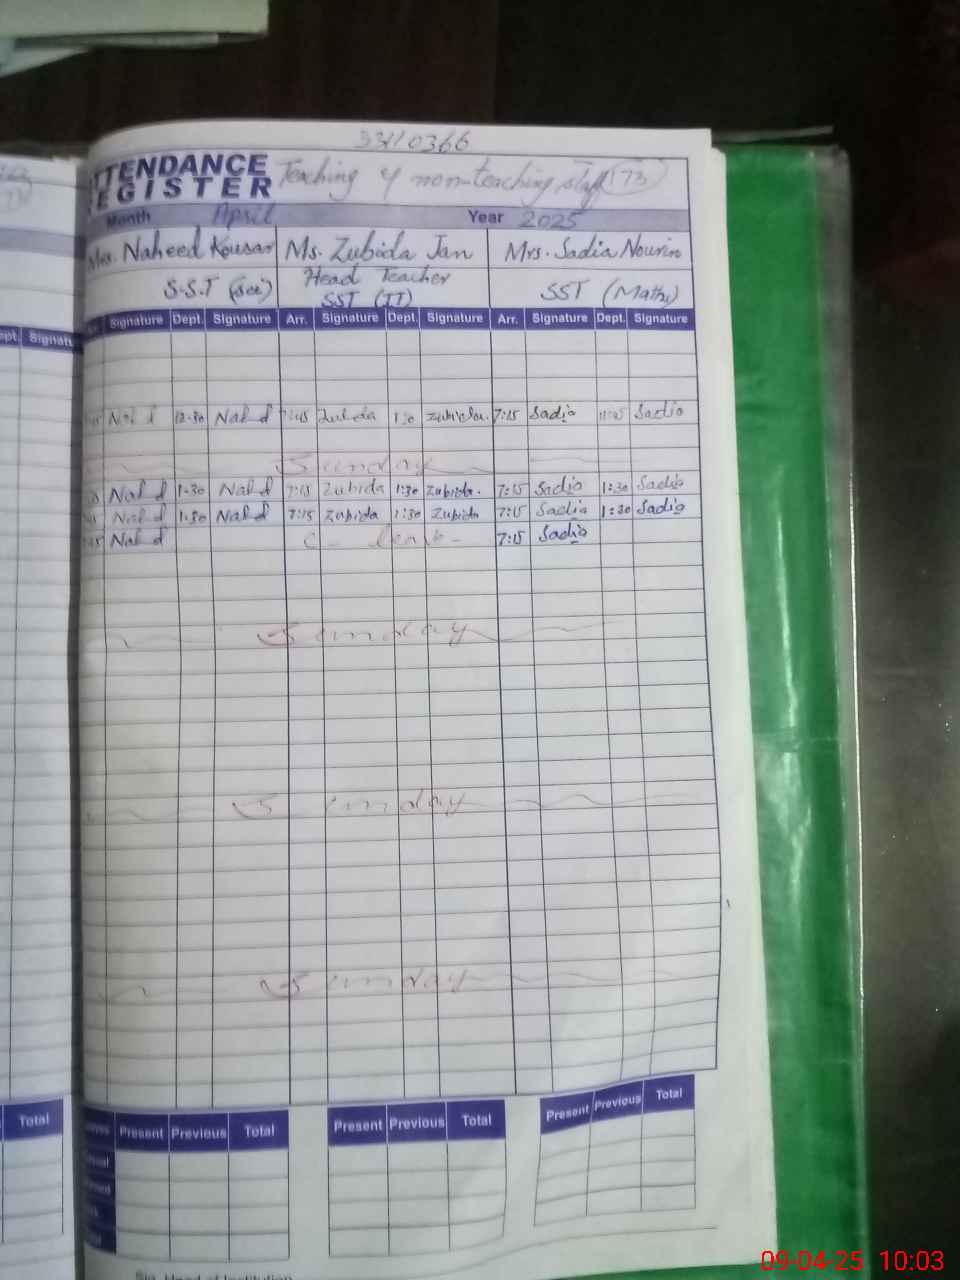 33110366
ATTENDANCE
REGISTER
Teaching & non-teaching staff 173
Month April Year 2025
Mrs. Naheed Kousar Ms. Zubida Jan Mrs. Sadia Nourin
S.S.T (Sci) Head Teacher SST (IT) SST (Maths)
Dept. Signature Signature Dept. Signature Arr. Signature Dept. Signature Arr. Signature Dept. Signature
Nah d 12-30 Nah d 7:15 Zubida 1:30 Zubida. 7:15 Sadia Sadia
Sunday
Nah d 1-30 Nah d 7:15 Zubida 1:30 Zubida. 7:15 Sadia 1:30 Sadia
Nah d 1:30 Nah d 7:15 Zubida 1:30 Zubida 7:15 Sadia 1:30 Sadia
Nah d C - leave - 7:15 Sadia
Sunday
Sunday
Sunday
Total Present Previous Total Present Previous Total Present Previous Total
Sig. Head of Institution
09-04-25 10:03